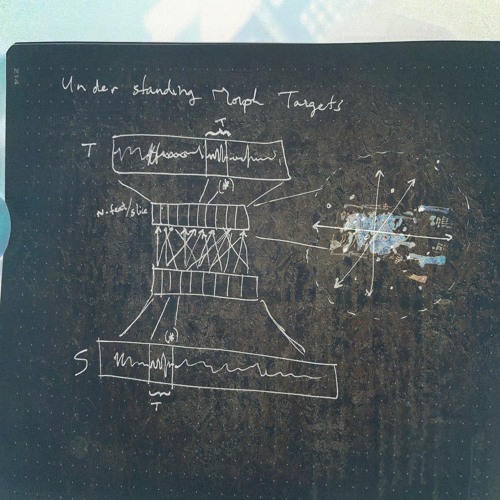 Understanding Morph Targets
T
T
(*)
N. feat/slice
(*)
S
T